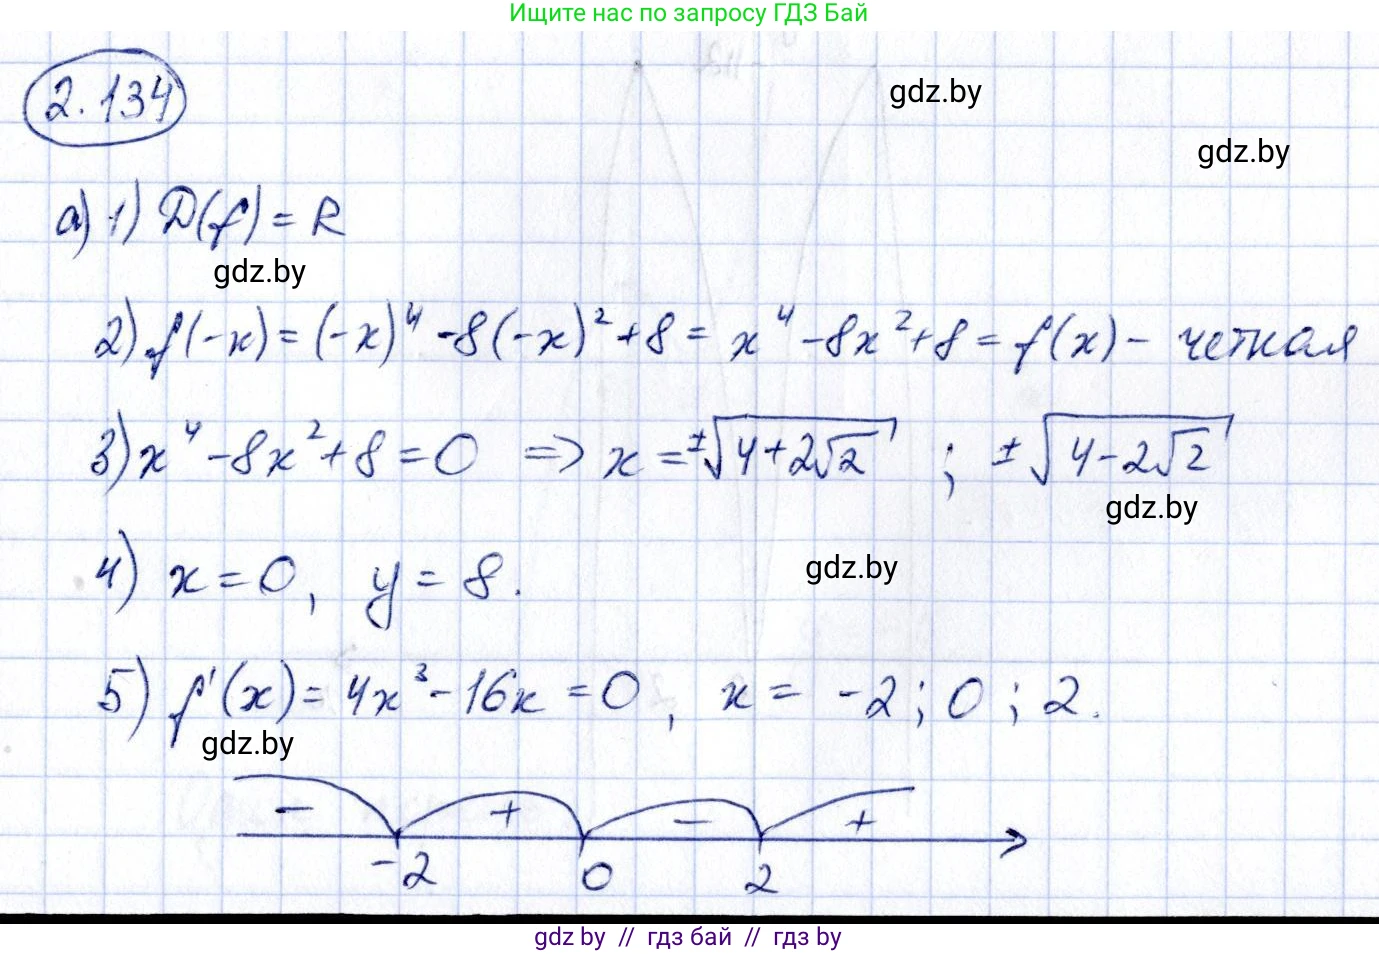 Ищите нас по запросу ГДЗ Бай
2.134
gdz.by
gdz.by
а) 1) D(f) = R
gdz.by
2) f(-x) = (-x)⁴ -8(-x)² +8 = x⁴ -8x² +8 = f(x) - четная
3) x⁴ -8x² +8 = 0 => x = ±√(4+2√2) ; ±√(4-2√2)
gdz.by
4) x = 0, y = 8.
gdz.by
5) f'(x) = 4x³ - 16x = 0, x = -2; 0; 2.
gdz.by
- + - +
-2 0 2
gdz by // гдз бай // гдз by